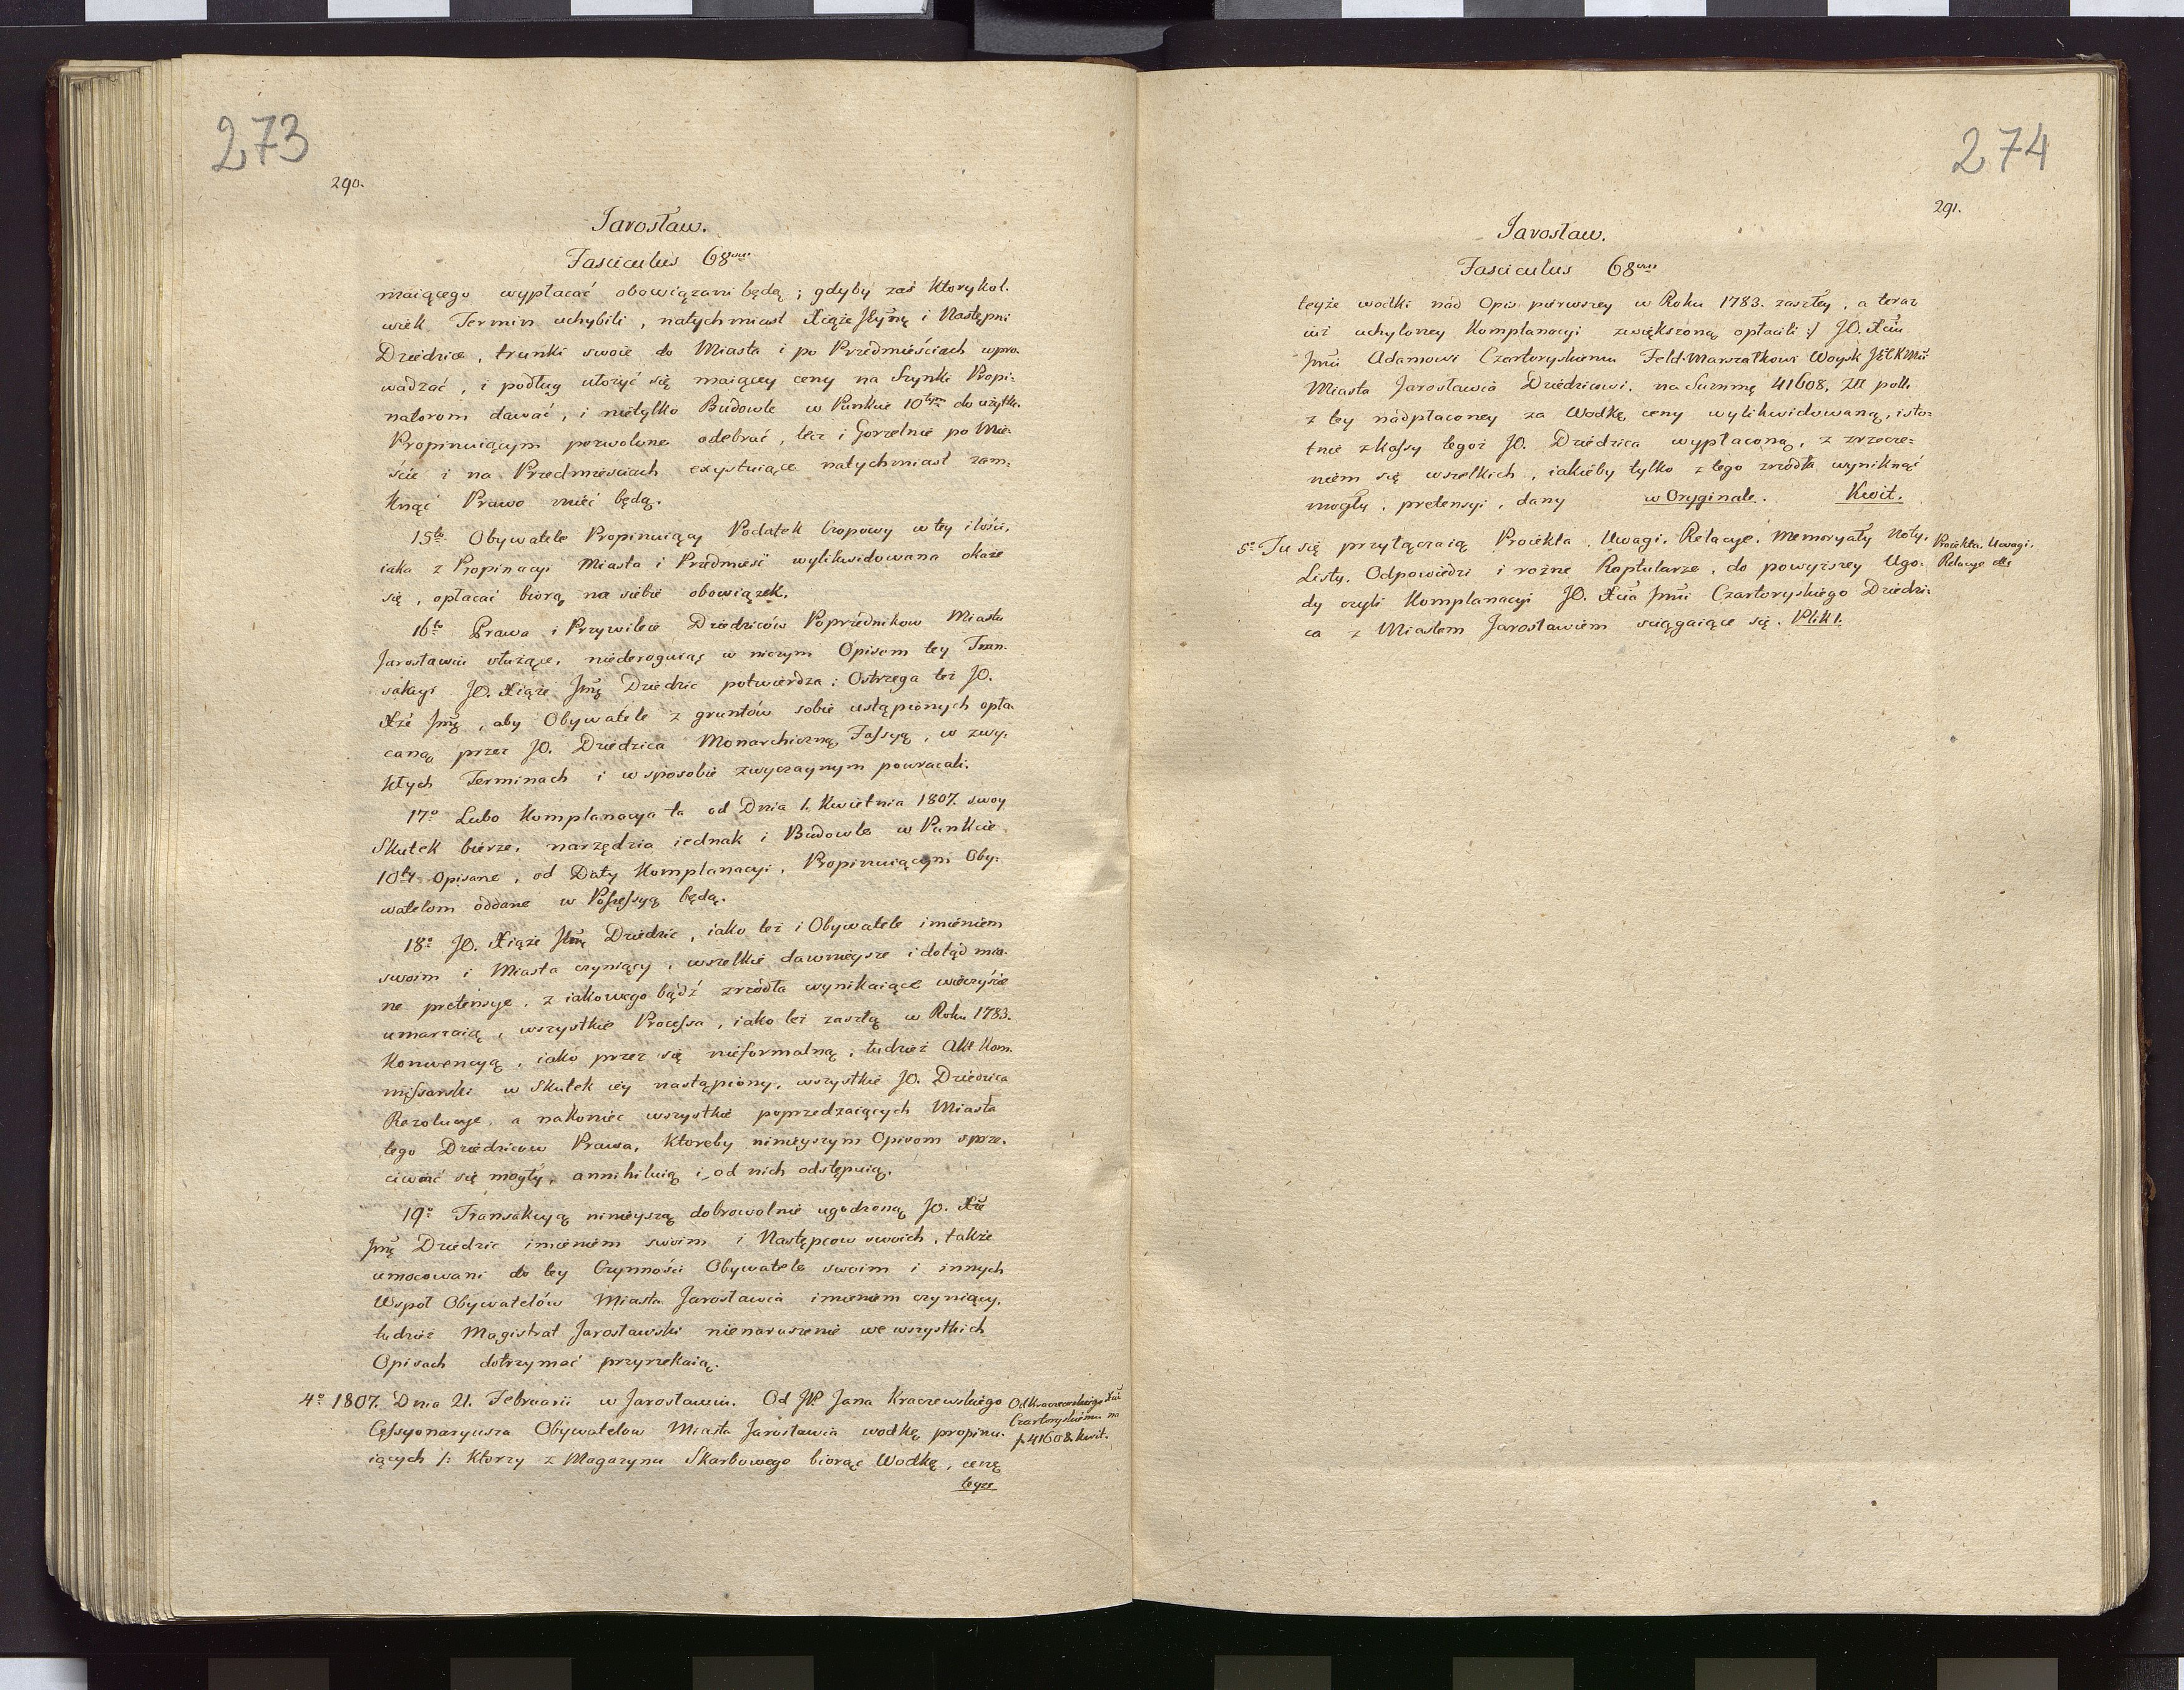 273
290.
Jarosław.
Fasciculus 68vus
maiącego wypłacać obowiązani będą; gdyby zaś Ktorykol:
wiek Termin uchybili, natychmiast Xiąże Jmę i Następni
Dziedzice, trunki swoie do Miasta i po Przedmieściach wpro:
wadzać, i podług ułożyć się maiącey ceny na Szynki Propi:
natorom dawać, i nietylko Budowle w Punkcie 10tym do użytku
Propinuiącym pozwolone odebrać, lecz i Gorzelnie po Mie:
ście i na Przedmiesciach exystuiące natychmiast zam:
Knąć Prawo mieć będą.
15to Obywatele Propinuiący Podatek Czopowy w tey ilości,
iaka z Propinacyi Miasta i Przedmieść wylikwidowana okaże
się, opłacać biorą na siebie obowiązek.
16to Prawa i Przywileie Dziedziców Poprzednikow Miastu
Jarosławiu służące, niederoguiąc w niczym Opisom tey Tran:
sakcyi JO. Xiąże Jmę Dziedzic potwierdza; Ostrzega też JO.
Xże Jmę, aby Obywatele z gruntów sobie ustąpionych opła:
caną przez JO. Dziedzica Monarchiczną Fassyą, w zwy:
kłych Terminach i w sposobie zwyczaynym powracali.
17o Lubo Komplanacya ta od Dnia 1. Kwietnia 1807. swoy
Skutek bierze, narzędzia iednak i Budowle w Punkcie
10tym Opisane, od Daty Komplanacyi, Propinuiącym Oby:
watelom oddane w Possessyą będą.
18o JO. Xiąże Jmę Dziedzic, iako też i Obywatele imieniem
swoim i Miasta czyniący, wszelkie dawnieysze i dotąd mia:
ne pretensye, z iakowego bądź zrzódła wynikaiące wieczyście
umarzaią, wszystkie Processa, iako też zaszłą w Roku 1783.
Konwencyą, iako przez się nieformalną, tudzież Akt Kom:
missarski w Skutek iey nastąpiony, wszystkie JO. Dziedzica
Rezolucye, a nakoniec wszystkie poprzedzaiących Miasta
tego Dziedzicow Prawa, Ktoreby ninieyszym Opisom sprze:
ciwiać się mogły, annihiluią i od nich odstępuią.
19o Transakcyą ninieyszą dobrowolnie ugodzoną JO. Xże
Jmę Dziedzic imieniem swoim i Następcow swoich, także
umocowani do tey Czynności Obywatele swoim i innych
Wspoł Obywatelów Miasta Jarosławia imieniem czyniący,
tudzież Magistrat Jarosławski nienaruszenie we wszystkich
Opisach dotrzymać przyrzekaią.
4o 1807. Dnia 21. Februarii w Jarosławiu. Od JP. Jana Kraczewskiego
Cessyonaryusza Obywatelow Miasta Jarosławia wodkę propinu:
iących /: Ktorzy z Magazynu Skarbowego biorąc Wodkę, cenę
teyże
Od Kraczewskiego Xciu
Czartoryskiemu na
f. 41608. kwit.
274
291.
Jarosław.
Fasciculus 68vus
teyże wodki nád Opis pierwszey w Roku 1783. zaszłey, a teraz
iuż uchyloney Komplanacyi zwiększoną opłacili :/ JO. Xciu
Jmci Adamowi Czartoryskiemu Feld. Marszałkowi Woysk JéCKMci
Miasta Jarosławia Dziedzicowi, na Summę 41608. Złt poll.
z tey nádpłaconey za Wodkę ceny wylikwidowaną, isto:
tnie z kassy tegoż JO. Dziedzica wypłaconą, z zrzecze:
niem się wszelkich, iakieby tylko z tego zrzódła wyniknąć
mogły, pretensyi, dany w Oryginale. Kwit.
5o Tu się przyłączaią Proiekta, Uwagi, Relacye, Memoryały Noty,
Listy, Odpowiedzi i rożne Raptularze, do powyższey Ugo:
dy czyli Komplanacyi JO. Xcia Jmci Czartoryskiego Dziedzi:
ca z Miastem Jarosławiem sciągaiące się. Plik 1.
Proiekta, Uwagi,
Relacye etc